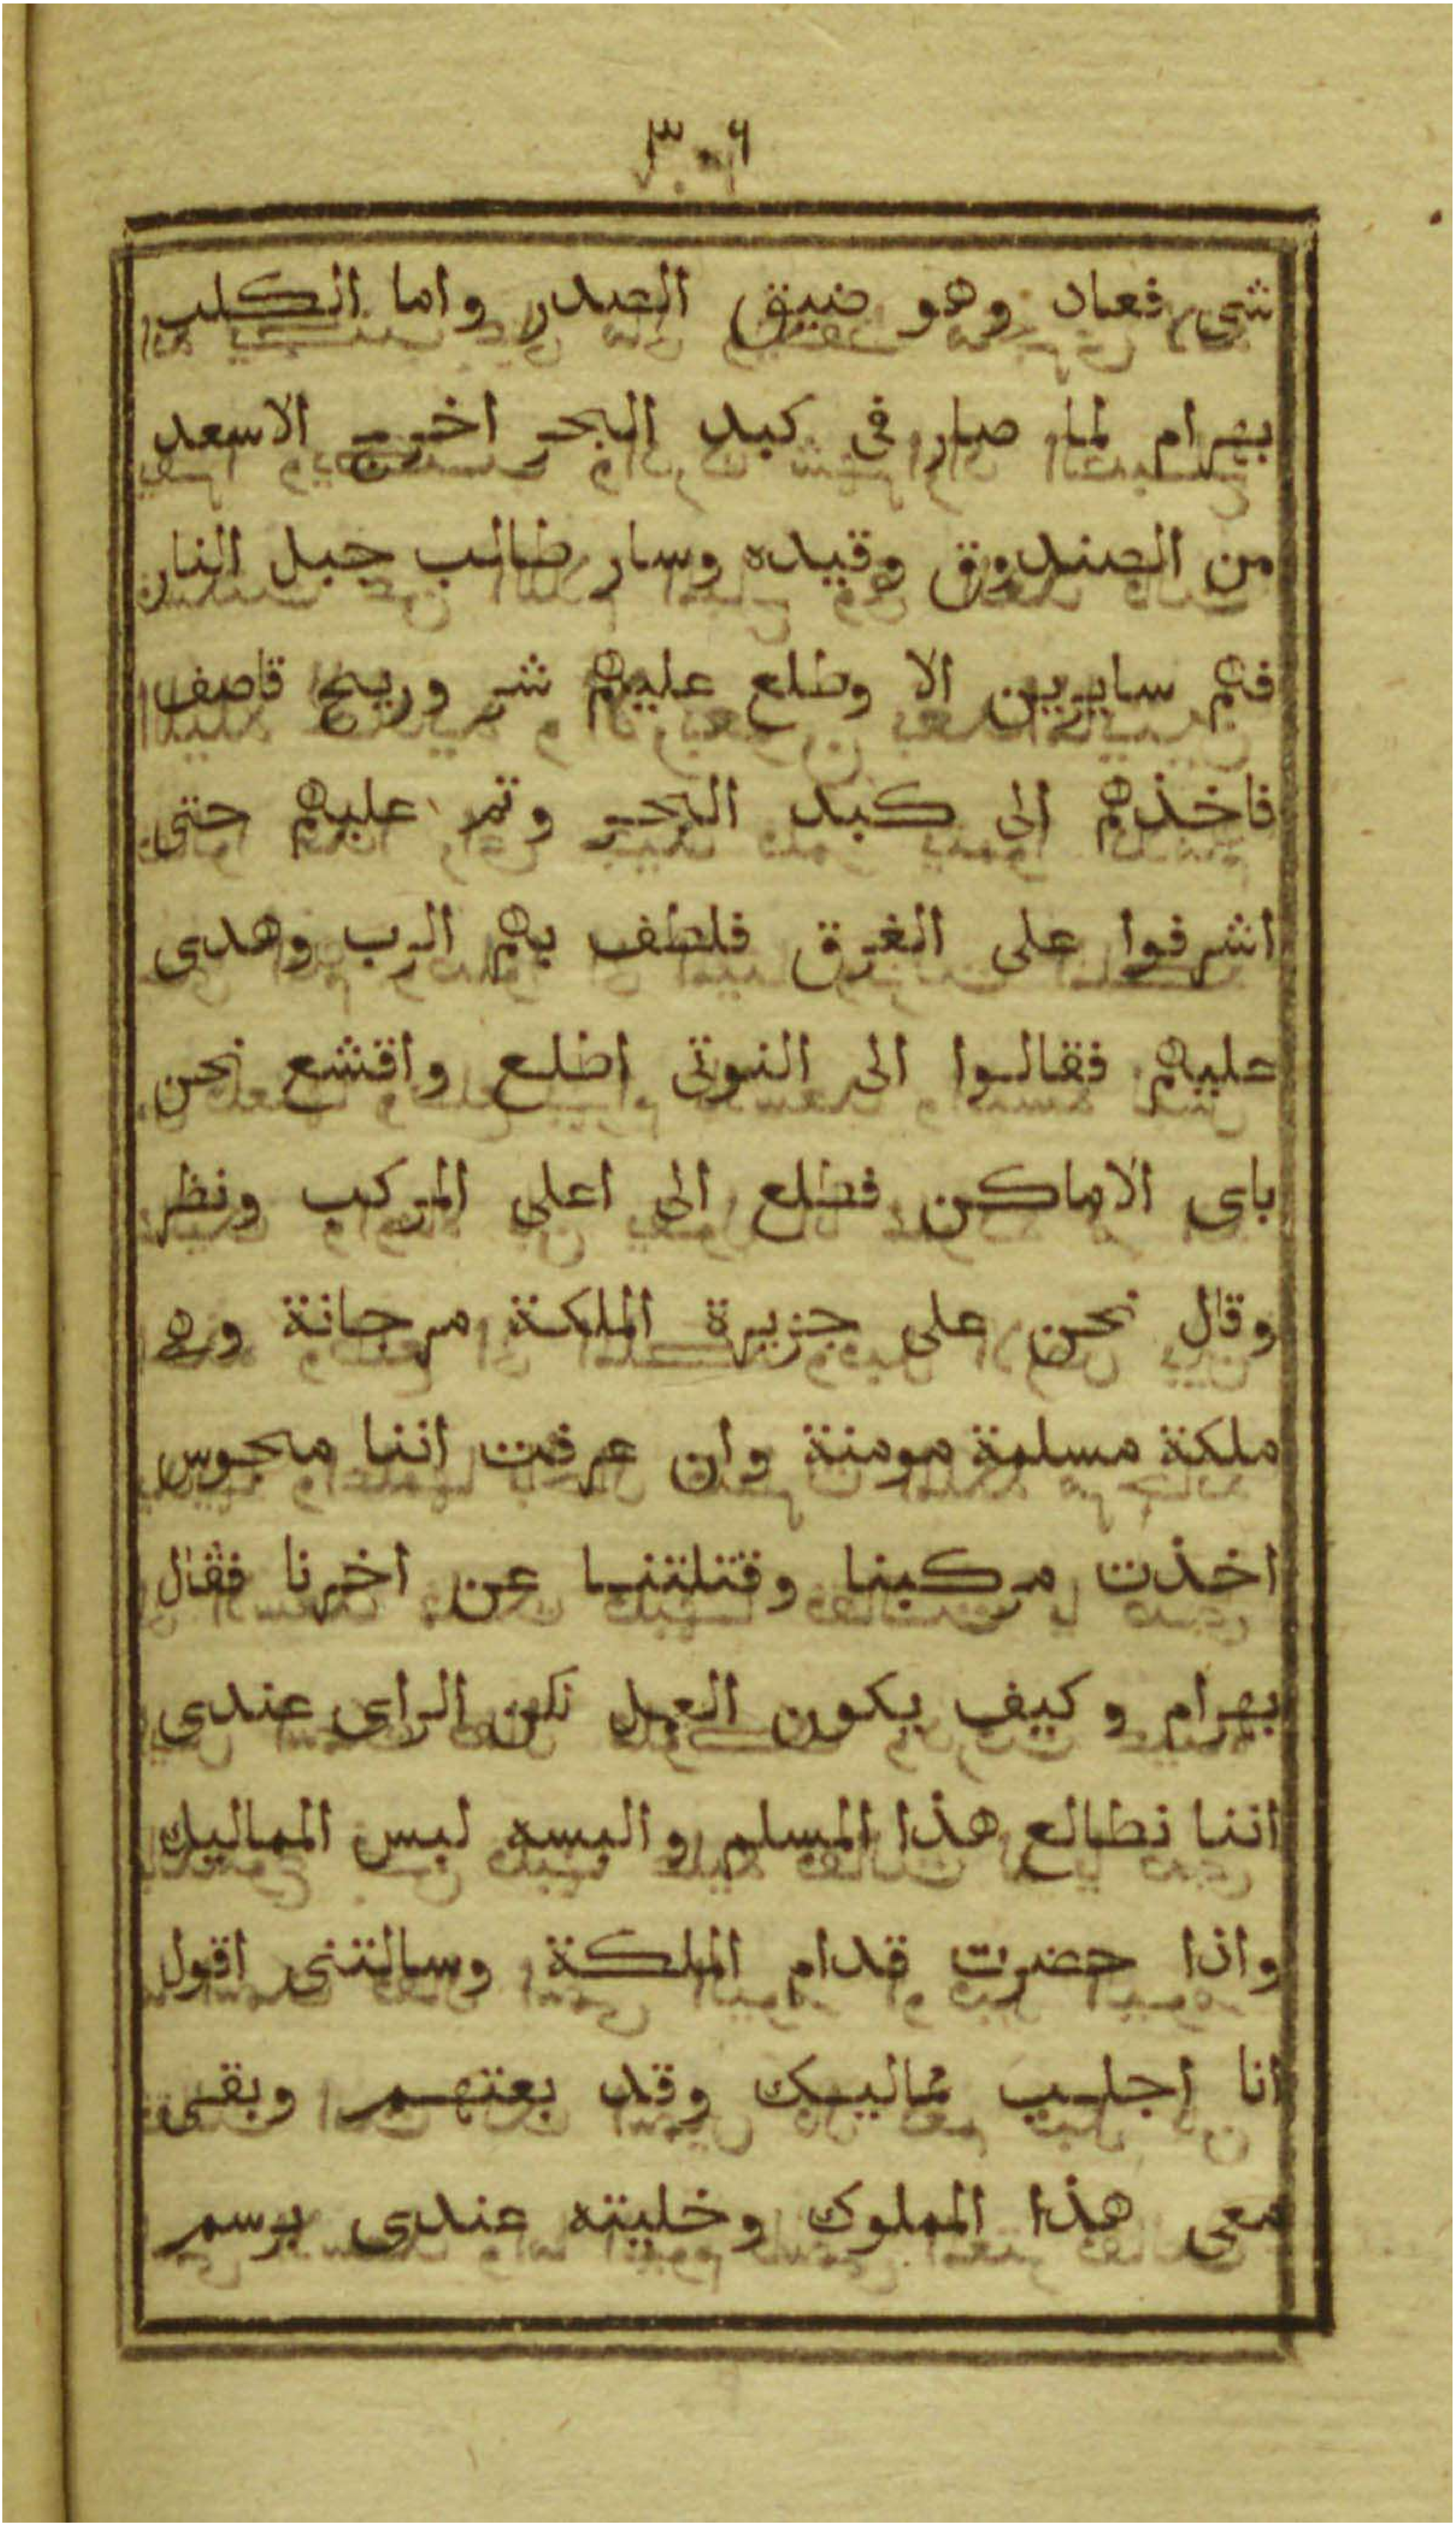 ٣٠٦
شى فعاد وهو ضيق الصدر واما الكلب
بهرام لما صار فى كبد البحر اخرج الاسعد
من الصندوق وقيده وسار طالب جبل النار
فهم سايرين الا وطلع عليهم شر وريح قاصف
فاخذهم الى كبد البحر وتم عليهم حتى
اشرفوا على الغرق فلطف بهم الرب وهدى
عليهم فقالوا الى النوتى اطلع واقشع نحن
باى الاماكن فطلع الى اعلى المركب ونظر
وقال نحن على جزيرة الملكة مرجانة وهى
ملكة مسلمة مومنة وان عرفت اننا مجوس
اخذت مركبنا وقتلتنا عن اخرنا فقال
بهرام وكيف يكون العمل لكن الراى عندى
اننا نطالع هذا المسلم والبسه لبس المماليك
واذا حضرت قدام الملكة وسالتنى اقول
انا اجلب مماليك وقد بعتهم وبقى
معى هذا المملوك وخليته عندى برسم